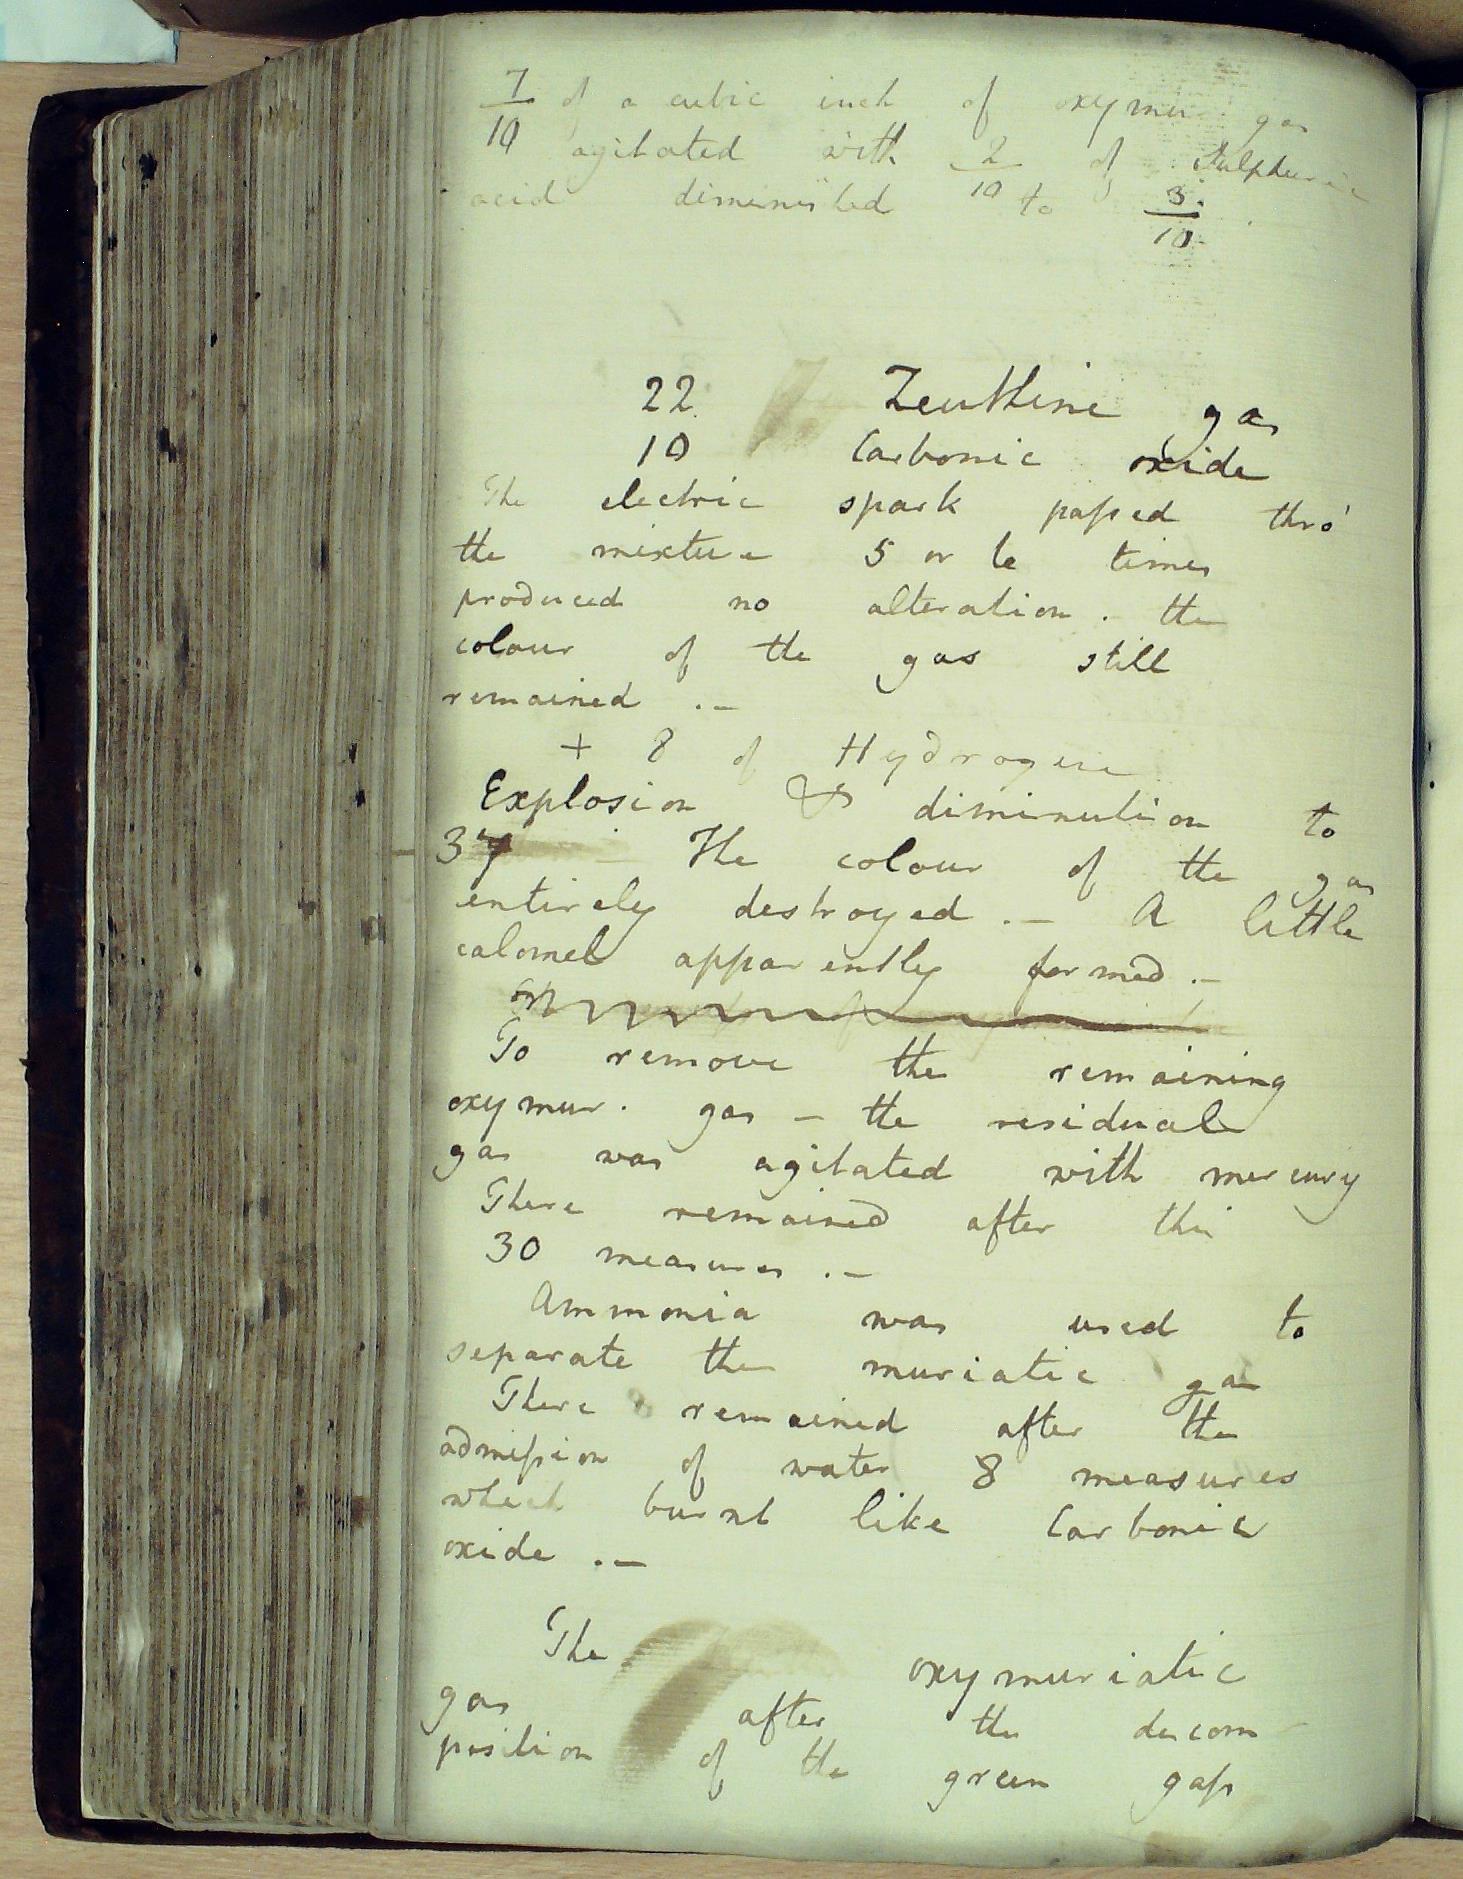 7/10 of a cubic inch of oxymur gas
agitated with 2/10 of Sulphuric
acid diminished to 3/10.
22 Zeuthine gas
10 Carbonic oxide
The electric spark paſsed thro'
the mixture 5 or 6 times
produced no alteration. the
colour of the gas still
remained .—
+ 8 of Hydrogene
Explosion & diminution to
37 — The colour of the gas
entirely destroyed .— A little
calomel apparently formed .—
To remove the remaining
oxymur. gas — the residual
gas was agitated with mercury
There remained after this
30 measures .—
Ammonia was used to
separate the muriatic gas
There remained after the
admiſsion of water 8 measures
which burnt like Carbonic
oxide .—
The oxymuriatic
gas after the decom
position of the green gaſs